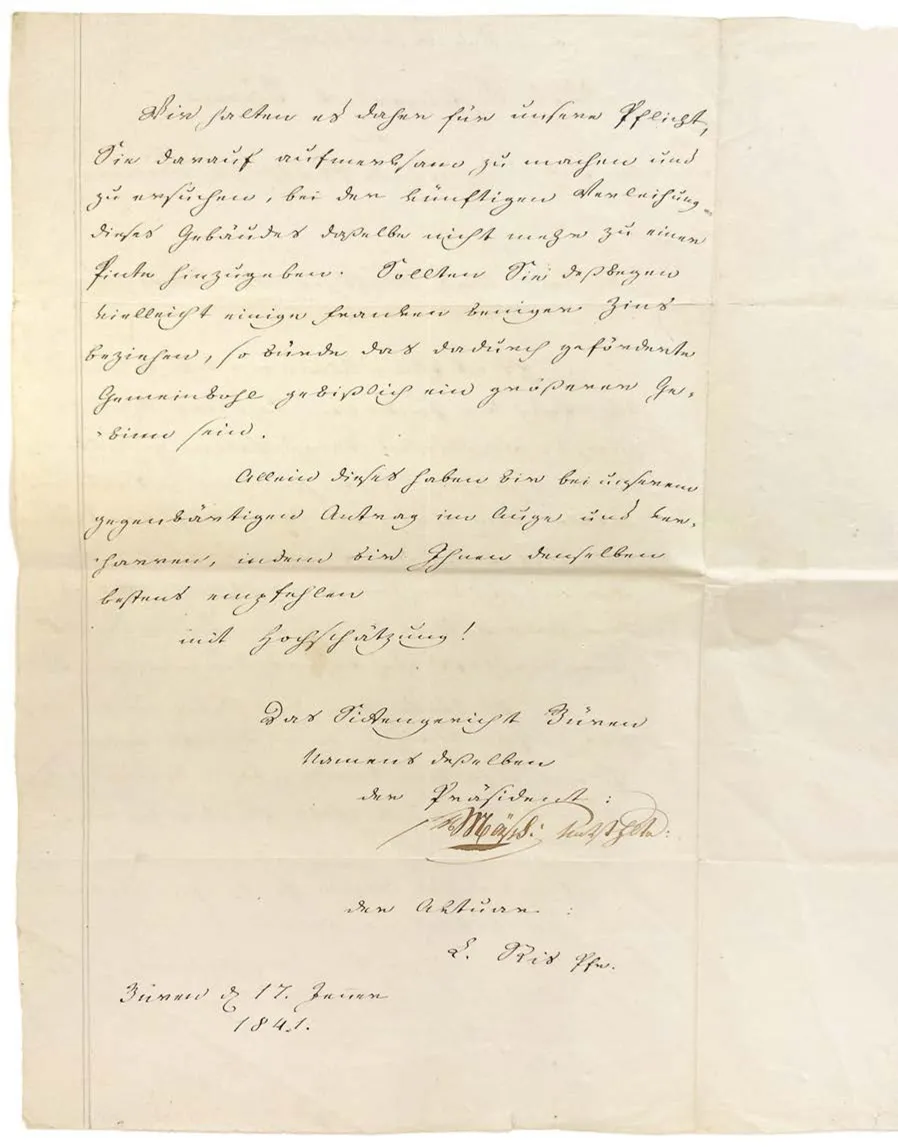 Wir halten es daher für unsere Pflicht,
Sie darauf aufmerksam zu machen und
zu ersuchen, bei der künftigen Verleihung
dieses Gebäudes daßelbe nicht mehr zu einer
Pinte hinzugeben. Sollten Sie deßwegen
vielleicht einige Franken weniger Zins
beziehen, so würde das dadurch geförderte
Gemeinwohl gewißlich ein größerer Ge-
-winn sein.
Allein dieses haben wir bei unserem
gegenwärtigen Antrag im Auge und ver-
harren, indem wir Ihnen denselben
bestens empfehlen
mit Hochschätzung!
Das Sittengericht Büren
Namens deßelben
der Präsident:
der Aktuar:
L. Ris Pfr.
Büren d 17. Jenner
1841.